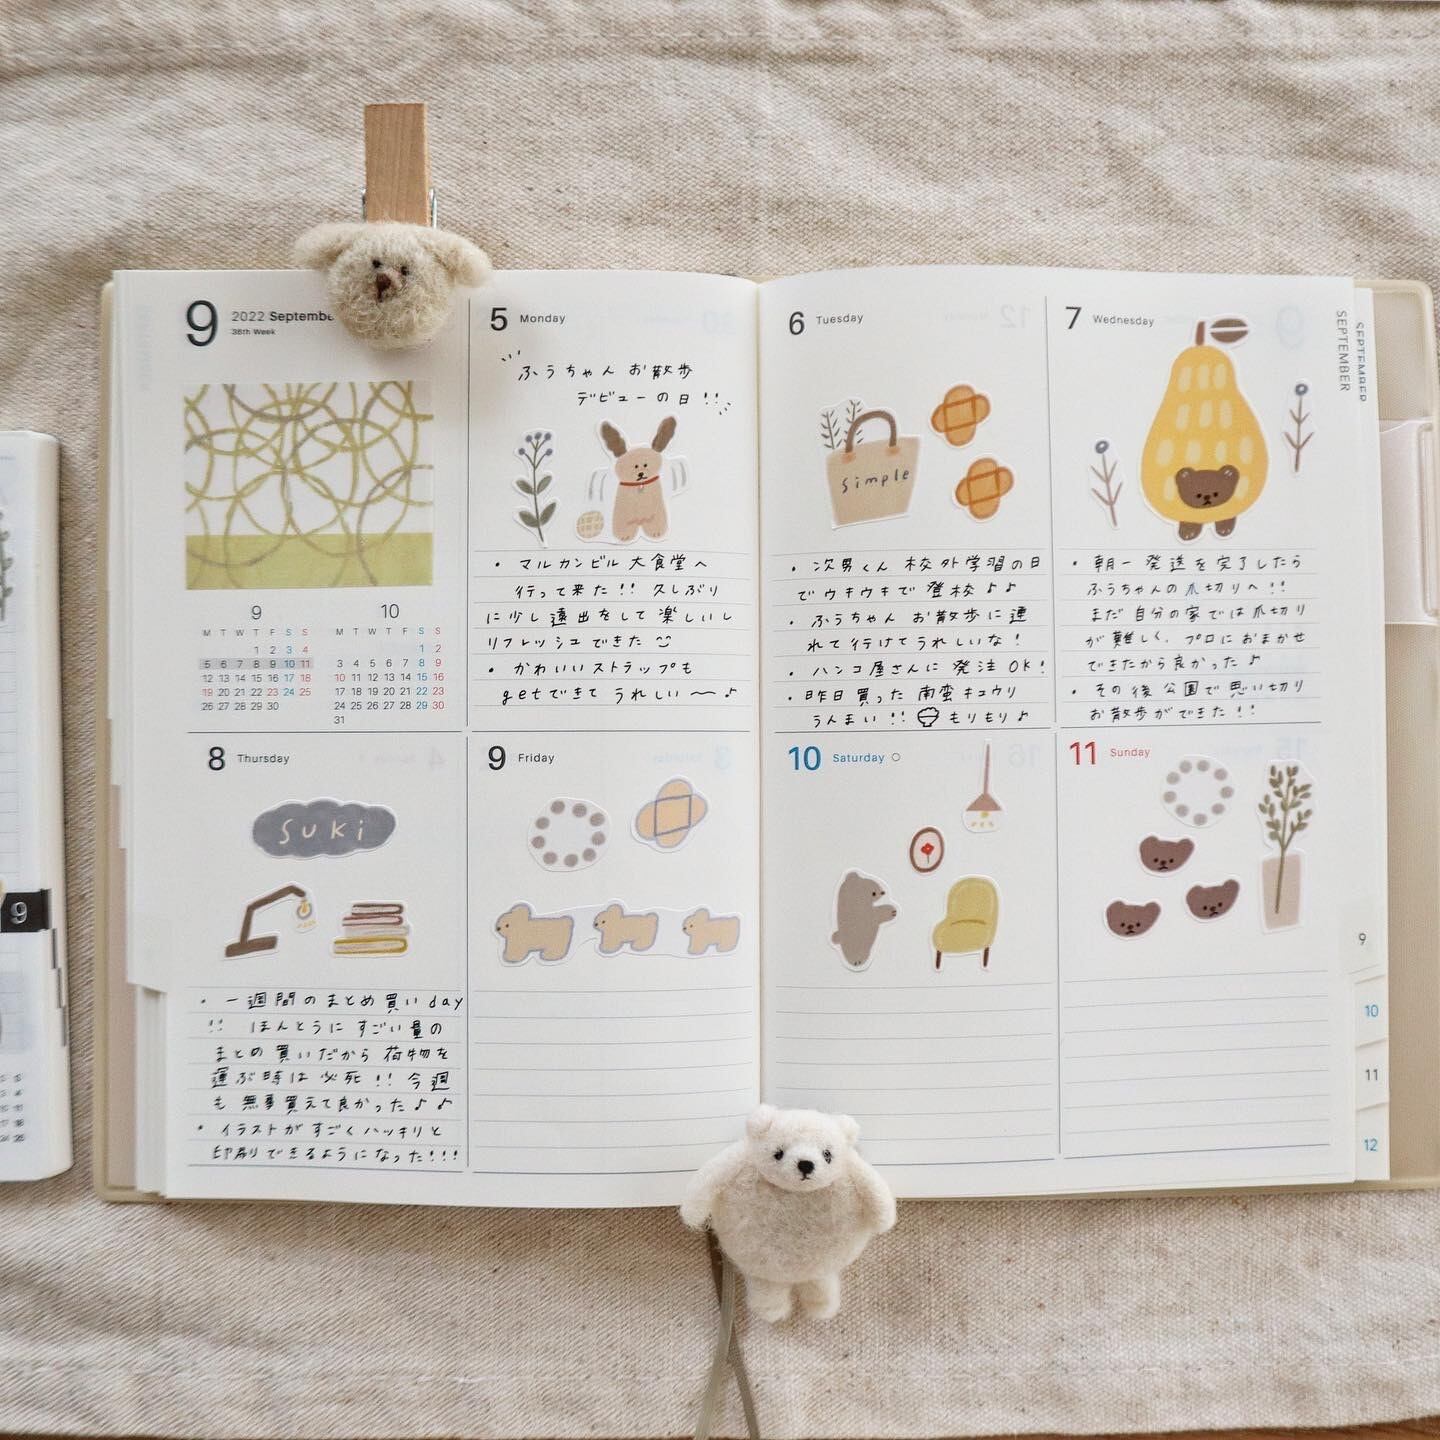 9 2022 Septembe
36th Week
9
M T W T F S S
1 2 3 4
5 6 7 8 9 10 11
12 13 14 15 16 17 18
19 20 21 22 23 24 25
26 27 28 29 30
10
M T W T F S S
1 2
3 4 5 6 7 8 9
10 11 12 13 14 15 16
17 18 19 20 21 22 23
24 25 26 27 28 29 30
31
5 Monday
ふうちゃん お散歩
デビューの日!!
・マルカンビル 大食堂へ
行って来た!! 久しぶり
に少し遠出をして楽しいし
リフレッシュできた
・かわいいストラップも
getできて うれしい〜♪
6 Tuesday
simple
・次男くん 校外学習の日
でウキウキで登校♪♪
・ふうちゃん お散歩に連
れて行けてうれしいな!
・ハンコ屋さんに発注OK!
・昨日買った南蛮キュウリ
うんまい!! もりもり♪
7 Wednesday
・朝一発送を完了したら
ふうちゃんの爪切りへ!!
まだ自分の家では爪切り
が難しく、プロにおまかせ
できたから良かった♪
・その後公園で思い切り
お散歩ができた!!
SEPTEMBER
SEPTEMBER
8 Thursday
suki
・一週間のまとめ買いday
!! ほんとうにすごい量の
まとめ買いだから荷物を
運ぶ時は必死!! 今週
も無事買えて良かった♪♪
・イラストがすごくハッキリと
印刷できるようになった!!!
9 Friday
10 Saturday ○
11 Sunday
9
10
11
12
9